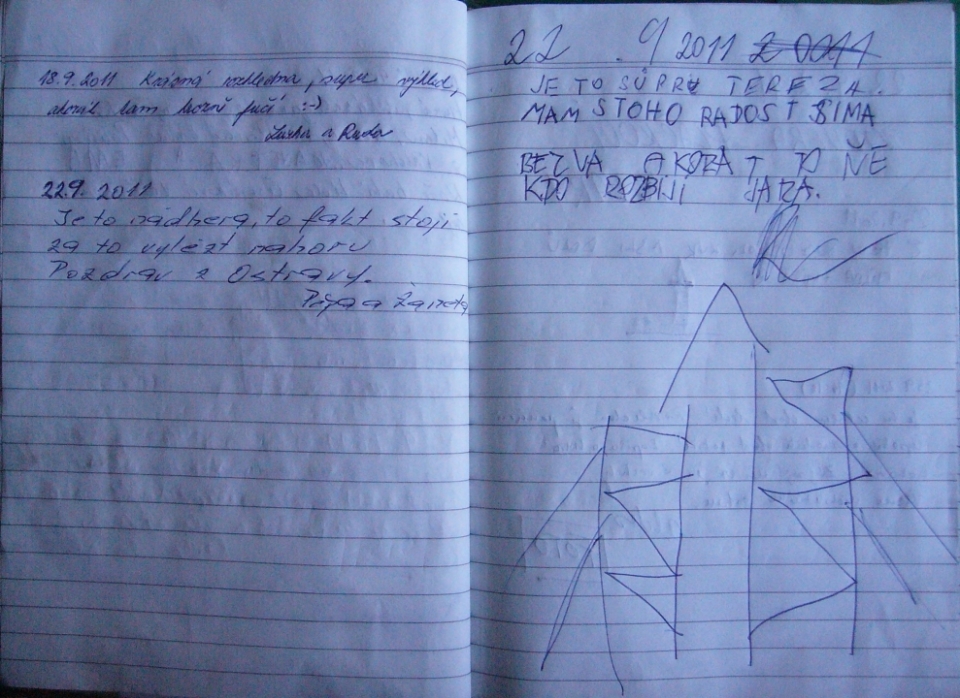 18.9.2011 Krásná rozhledna, super výhled,
akorát tam hrozně fučí :-)
a Rada
22.9. 2011
Je to nádhera, to fakt stojí
za to vylézt nahoru
Pozdrav z Ostravy.
a Žaneta
22 .9 2011
JE TO SŮPRY TEREZA.
MAM STOHO RADOST ŠIMA
BEZVA AKORÁT TO NĚ
KDO ROZBIJI JARA.